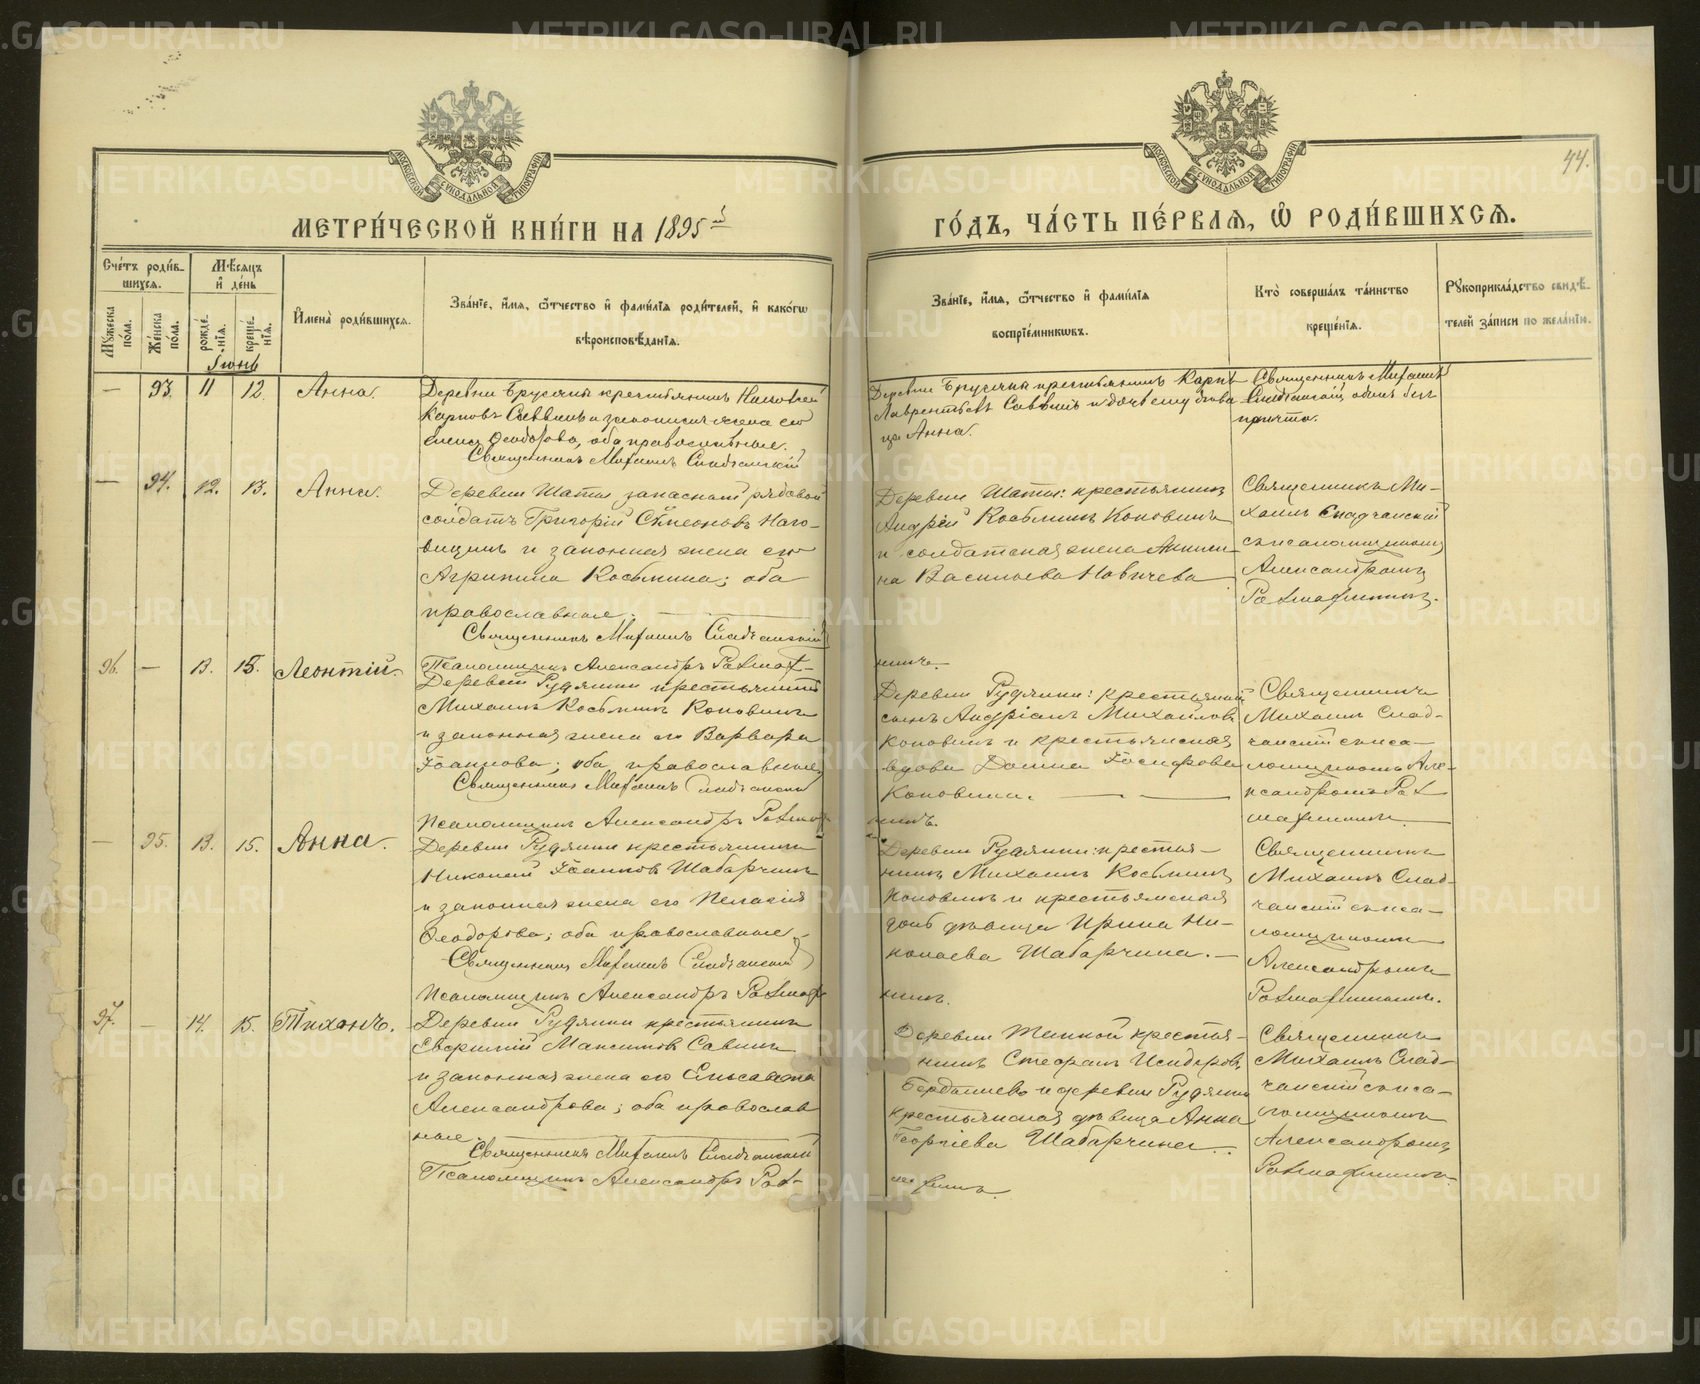 МЕТРИ́ЧЕСКОЙ КНИ́ГИ НА 1895 й
ГО́ДЪ, ЧА́СТЬ ПЕ́РВАЯ, Ѡ҆ РОДИ́ВШИХСЯ.
44.
Сче́тъ роди́в-
шихся.
Мꙋ́жеска по́ла.
Же́нска по́ла.
Мѣ́сяцъ
и҆ де́нь
рожде́нїя.
креще́нїя.
И҆мена̀ роди́вшихся.
Зва́нїе, и҆́мя, ѻ҆́тчество и҆ фами́лїя роди́телей, и҆ како́гѡ
вѣроисповѣ́данїя.
Зва́нїе, и҆́мя, ѻ҆́тчество и҆ фами́лїя
воспрїе́мникѡвъ.
Кто̀ соверша́лъ та́инство
креще́нїя.
Рꙋкоприкла́дство свидѣ́-
телей за́писи по жела́нїю.
Іюнь
— 93. 11 12. Анна.
Деревни Брусяны крестьянинъ
Карповъ Саввинъ и законная жена его
Елена Ѳеодорова, оба православные.
Священникъ Михаилъ Сладчанскій
Деревни Брусяны крестьянинъ Карпъ
Лаврентьевъ Саввинъ и дочь ему девица
Анна.
Священникъ Михаилъ
причта.
— 94. 12. 13. Анна.
Деревни Шаты запасной рядовой
солдатъ Григорій Сѵмеоновъ Наго-
вицинъ и законная жена его
Агрипина Косьмина; оба
православные.
Священникъ Михаилъ Сладчанскій
Псаломщикъ Александръ Рахмаф-
нинъ.
Деревни Шаты: крестьянинъ
Андрей Косьминъ Коновинъ
и солдатская жена
Васильева Новичева
Священникъ Ми-
хаилъ Сладчанскій
съ псаломщикомъ
Александромъ
96. — 13. 15. Леонтій.
Деревни Рудянки крестьянинъ
Михаилъ Косьминъ Коновинъ
и законная жена его Варвара
Іоаннова; оба православные.
Священникъ Михаилъ Сладчанскій
Псаломщикъ Александръ
нинъ.
Деревни Рудянки: крестьянскій
сынъ Андріанъ Михайловъ
Коновинъ и крестьянская
вдова Домна Іосифова
Коновина.
Священникъ
Михаилъ Слад-
чанскій съ пса-
ломщикомъ Але-
ксандромъ
— 95. 13. 15. Анна.
Деревни Рудянки крестьянинъ
Николай Іоанновъ Шабарчинъ
и законная жена его Пелагія
Ѳеодорова; оба православные
Священникъ Михаилъ Сладчанскій
Псаломщикъ Александръ
нинъ.
Деревни Рудянки: крестья-
нинъ Михаилъ Косьминъ
Коновинъ и крестьянская
дочь девица Ирина Ни-
колаева Шабарчина.
Священникъ
Михаилъ Слад-
чанскій съ пса-
ломщикомъ
Александромъ
97. — 14. 15. Тихонъ.
Деревни Рудянки крестьянинъ
Максимовъ Савинъ
и законная жена его Елисавета
Александрова; оба православ
ные.
Священникъ Михаилъ Сладчанскій
Псаломщикъ Александръ
Деревни Талкой крестья-
нинъ Стефанъ Исидоровъ
и деревни Рудянки
крестьянская девица Анна
Георгіева Шабарчина.
Священникъ
Михаилъ Слад-
чанскій съ пса-
ломщикомъ
Александромъ
METRIKI.GASO-URAL.RU